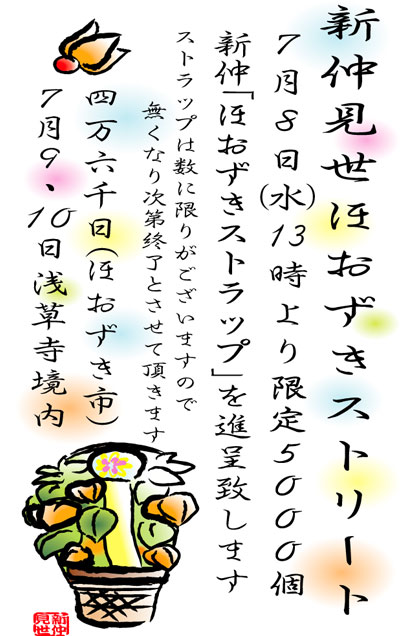 新仲見世ほおずきストリート
7月8日(水)13時より限定5000個
新仲「ほおずきストラップ」を進呈致します
ストラップは数に限りがございますので
無くなり次第終了とさせて頂きます
四万六千日(ほおずき市)
7月9、10日浅草寺境内
新仲見世